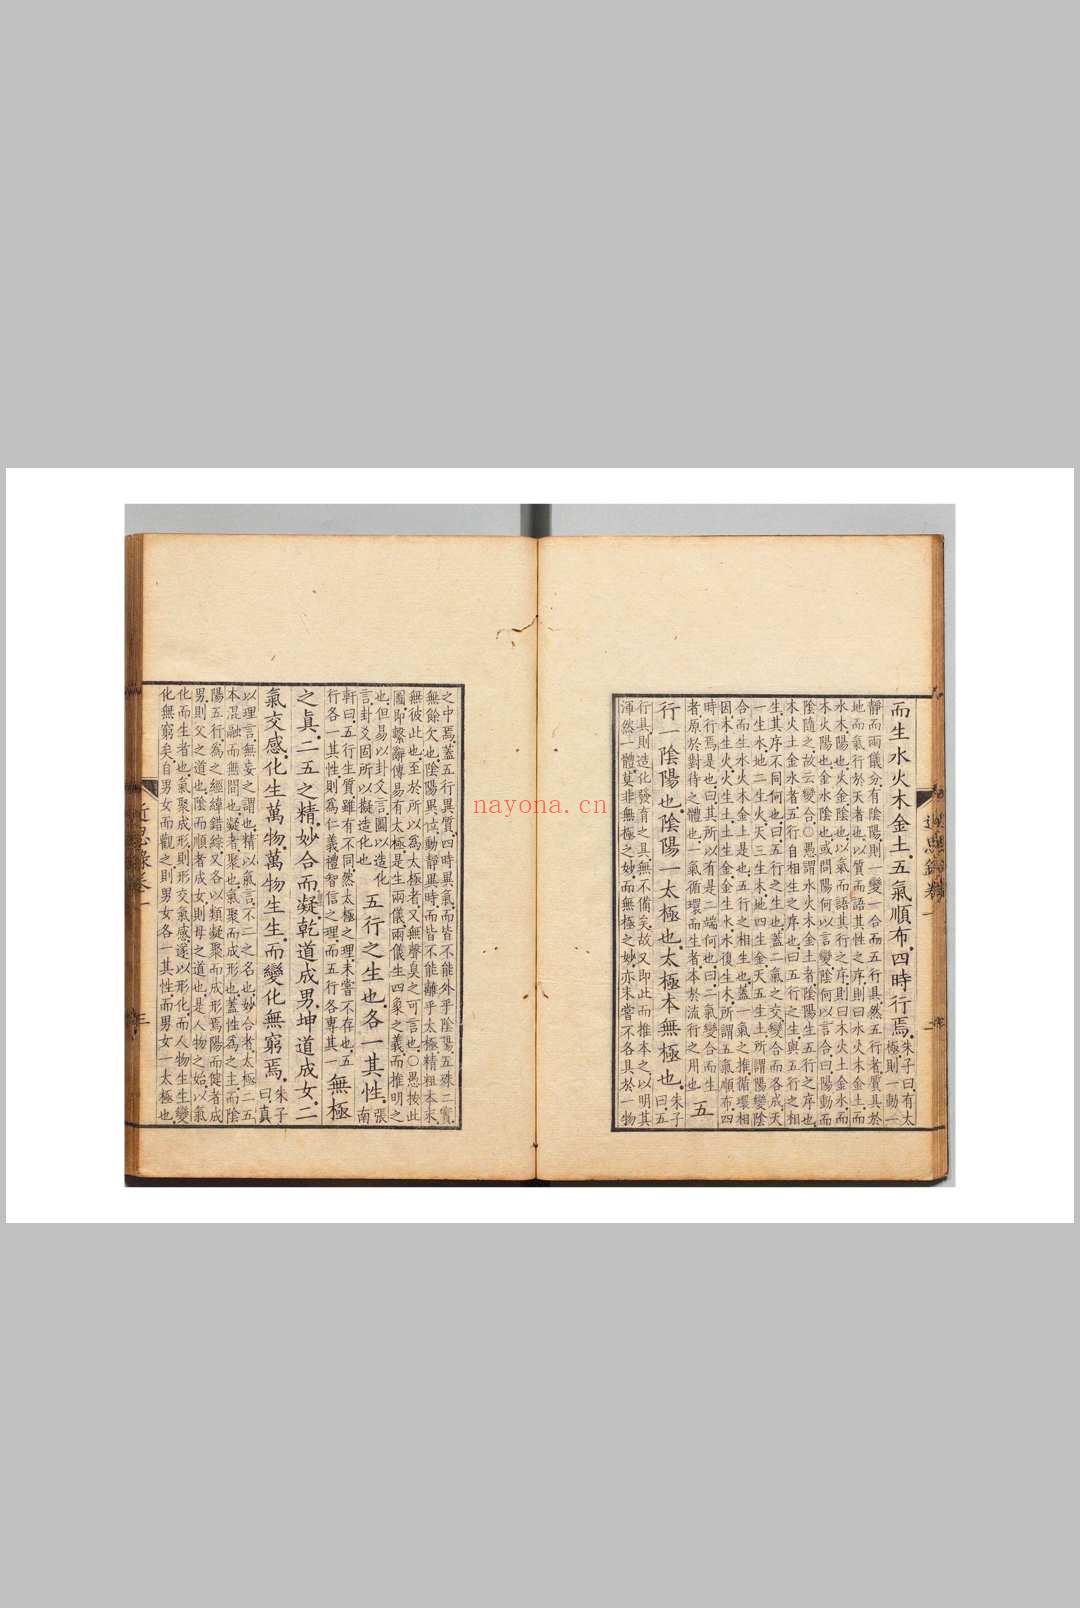 而生水火木金土五氣順布四時行焉朱子曰有太
極則一動一
靜而兩儀分有陰陽則一變一合而五行具然五行者質具於
地而氣行於天者也以質而語其生之序則曰水火木金土而
水木陽也火金陰也以氣而語其行之序則曰木火土金水而
木火陽也金水陰也或問陽何以言變陰何以言合曰陽動而
陰隨之故云變合○愚謂水火木金土者陰陽生五行之序也
木火土金水者五行自相生之序也曰五行之生與五行之相
生其序不同何也曰五行之生也蓋二氣之交變合而各成天
一生水地二生火天三生木地四生金天五生土所謂陽變陰
合而生水火木金土是也五行之相生也蓋一氣之推循環相
因木生火火生土土生金金生水水復生木所謂五氣順布四
時行焉是也曰其所以有是二端何也曰二氣變合而生
者原於對待之體也一氣循環而生者本於流行之用也 五
行一陰陽也陰陽一太極也太極本無極也朱子
曰五
行具則造化發育之具無不備矣故又即此而推本之以明其
渾然一體莫非無極之妙而無極之妙亦未嘗不各具於一物
近思錄卷一
二
之中焉蓋五行異質四時異氣而皆不能外乎陰陽五殊二實
無餘欠也陰陽異位動靜異時而皆不能離乎太極精粗本末
無彼此也至於所以為太極者又無聲臭之可言也○愚按此
圖即繫辭傳易有太極是生兩儀兩儀生四象之義而推明之
也但易以卦爻言圖以造化
言卦爻固所以擬造化也
五行之生也各一其性張
南
軒曰五行生質雖有不同然太極之理未嘗不存也五
行各一其性則為仁義禮智信之理而五行各專其一 無極
之真二五之精妙合而凝乾道成男坤道成女二
氣交感化生萬物萬物生生而變化無窮焉朱子
曰真
以理言無妄之謂也精以氣言不二之名也妙合者太極二五
本混融而無間也凝者聚也氣聚而成形也蓋性為之主而陰
陽五行為之經緯錯綜又各以類凝聚而成形焉陽而健者成
男則父之道也陰而順者成女則母之道也是人物之始以氣
化而生者也氣聚成形則形交氣感遂以形化而人物生生變
化無窮矣自男女而觀之則男女各一其性而男女一太極也
近思錄卷一
三
nayona.cn